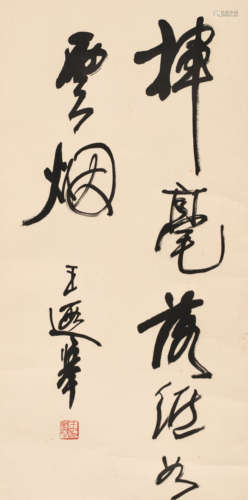 揮毫落紙如
雲烟
王遐舉